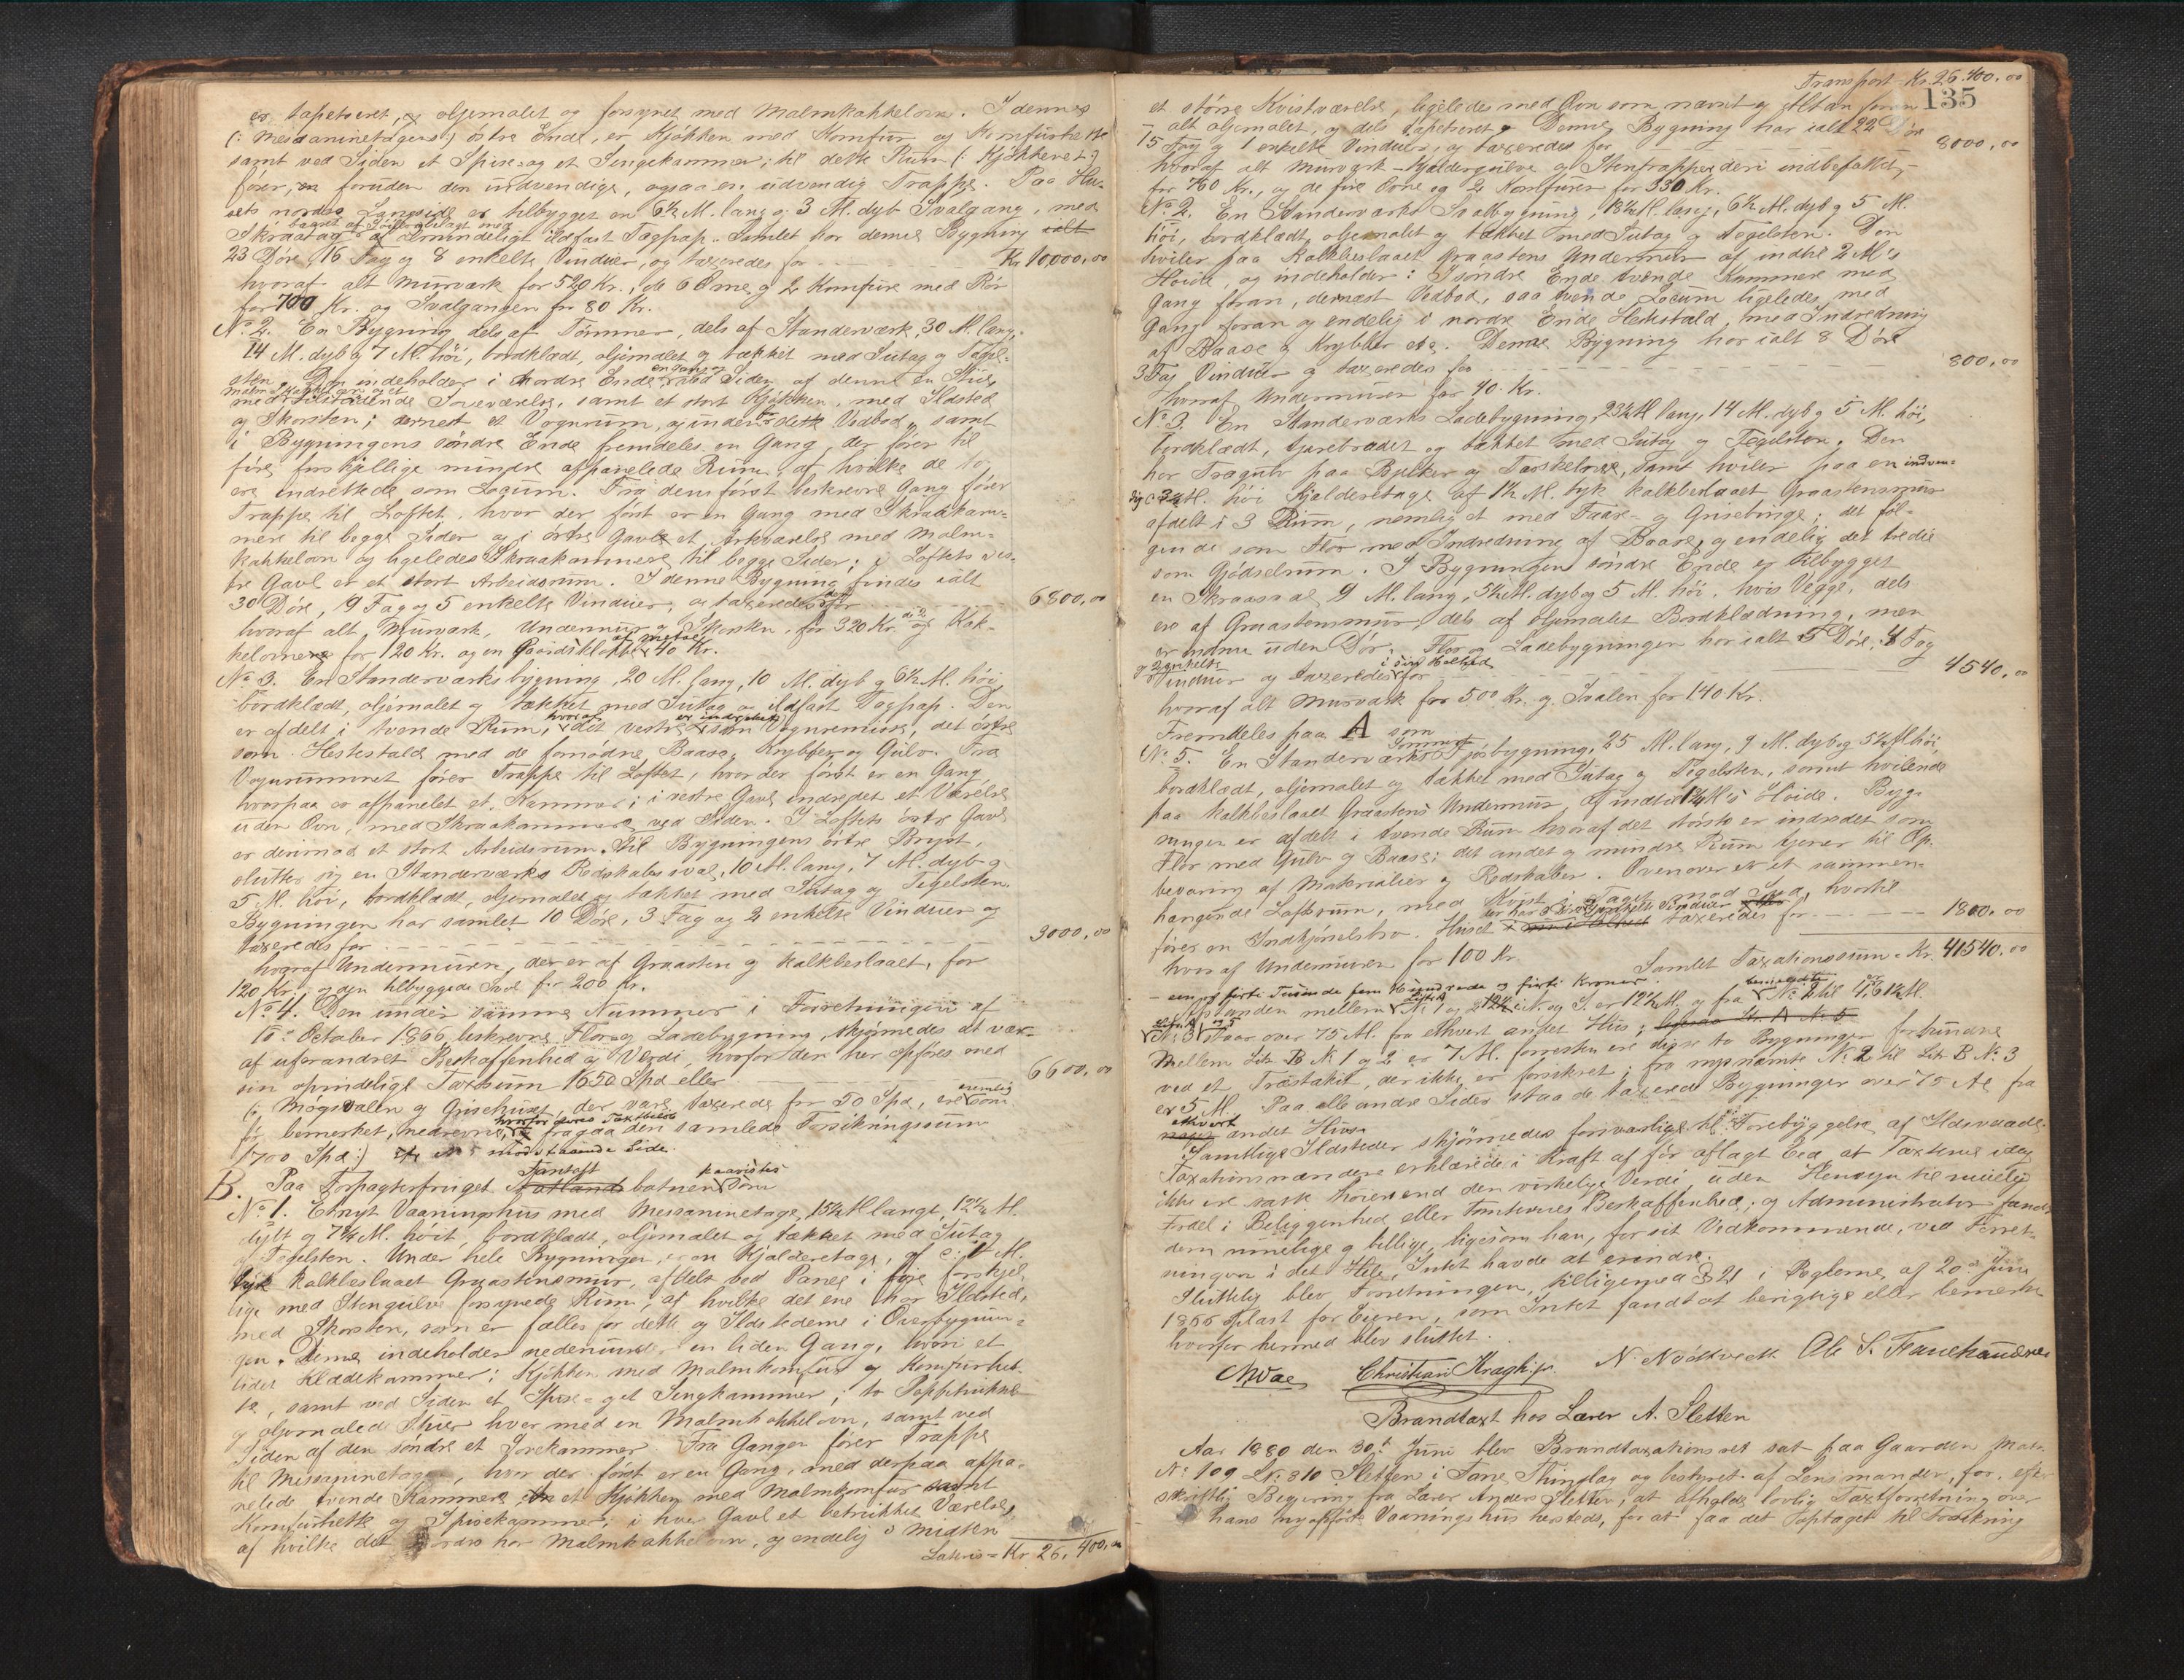 er tapetseret, og oljemalet og forsynet med Malmkakkelovn. I dennes
(: Messaninetagens) östre Ende, er Kjökken med Komfur og Komfurhette
samt ved Siden et Spise- og et Sengekammer; til dette Rum (: Kjökkenet :)
förer, foruden den indvendige, ogsaa en udvendig Trappe. Paa Hu-
sets nordre Langside er tilbygget en 6½ M. lang og 3 M. dyb Svalgang, med
Skraatag af almindeligt ildfast Tagpap. Samlet har denne Bygning ialt
23 Döre, 16 Fag og 8 enkelte Vinduer, og taxeredes for Kr 10,000,00
hvoraf alt Murværk for 520 Kr., de 6 Ovne og 2 Komfure med Rör
for 700 Kr. og Svalgangen for 80 Kr.
No 2. En Bygning dels af Tömmer, dels af Standerværk, 30 M. lang,
14 M. dyb og 7 M. höi, bordklædt, oljemalet og tækket med Sutag og Tegl-
sten. Den indeholder i nordre Ende en Gang og ved Siden af denne en Stue
med Malmkakkelovn og et tilstödende Soveværelse, samt et stort Kjökken, med Ildsted
og Skorsten; dernest et Vognrum, og under dette Vedbod, samt
i Bygningens söndre Ende fremdeles en Gang, der förer til
fire forskjellige mindre afpanelede Rum, af hvilke de to
ere indrettede som Locum. Fra den först beskrevne Gang förer
Trappe til Loftet, hvor der först er en Gang med Skraakam-
mere til begge Sider og i östre Gavl et Arkværelse med Malm-
kakkelovn og ligeledes Skraakammere til begge Sider; i Loftets ves-
tre Gavl er et stort Arbeidsrum. I denne Bygning findes ialt
30 Döre, 9 Fag og 5 enkelte Vinduer, og taxeredes den for 6800,00
hvoraf alt Murværk, Undermur og Skorsten, for 320 Kr. de 2 Kak-
kelovne for 120 Kr. og en Gaardsklokke af Metal 40 Kr.
No 3. En Standerværksbygning, 20 M. lang, 10 M. dyb og 6½ M. höi,
bordklædt, oljemalet og tækket med Sutag og ildfast Tagpap. Den
er afdelt i tvende Rum, hvoraf det vestre er indrettet som Vognremisse, det östre
som Hestestald med de fornödne Baase, Krybber og Gulv. Fra
Vognrummet förer Trappe til Loftet, hvor der först er en Gang,
hvorpaa er afpanelet et Kammer; i vestre Gavl indredet et Værelse
uden Ovn, med Skraakammere ved Siden. I Loftets östre Gavl
er derimod et stort Arbeidsrum. Til Bygningens östre Bryst,
slutter sig en Standerværks Redskabssval, 10 M. lang, 7 M. dyb og
5 M. höi, bordklædt, oljemalet og tækket med Sutag og Tegelsten.
Bygningen har samlet 10 Döre, 3 Fag og 2 enkelte Vinduer og
taxeredes for 3000,00
hvoraf Undermuren, der er af Graasten og kalkbeslaaet, for
120 Kr. og den tilbyggede Sval for 200 Kr.
No 4. Den under samme Nummer i Forretningen af
10de October 1866, beskrevne Flor og Ladebygning, skjönnedes at være
af uforandret Beskaffenhed og Værdi, hvorfor den her opföres med
sin oprindelige Taxtsum 1650 Spd eller 6600,00
(: Mögsvalen og Grisehuset, der vare taxerede for 50 Spd, ere nemlig som
för bemerket, nedrevne, hvorfor deres Taxtbelöb fragaa den samlede Forsikringssum
1700 Spd :) No 5 modstaaende Side.
B. Paa Forpagterbruget Fantoft botnen kaarsted Som
No 1. Et nyt Vaaningshus med Messaninetage, 15½ M langt, 12½ M.
dybt og 7½ M. höit, bordklædt, oljemalet og tækket med Sutag
og Tegelsten. Under hele Bygningen, er en Kjælderetage, af c. 1 M.
tyk kalkbeslaaet Graastensmur, afdelt ved Panel i fire forskjel-
lige med Stengulve forsynede Rum, af hvilke det ene har Ildsted,
med Skorsten, som er fælles for dette og Ildstederne i Overbygnin-
gen. Denne indeholder nedenunder en liden Gang, hvori et
lidet Klædekammer; Kjökken med Malmkomfur og Komfurhet-
te, samt ved Siden et Spise- og et Sengkammer; to Papbetrukne
og oljemalede Stuer hver med en Malmkakkelovn, samt ved
Siden af den söndre et Sovekammer. Fra Gangen förer Trappe
til Messaninetagen, hvor der först er en Gang, med derpaa afpa-
nelede tvende Kammere, et Kjökken med Malmkomfur samt
Komfurhette og Spisekammer; i hver Gavl et betrukket Værelse,
af hvilke det nordre har Malmkakkelovn, og endelig i Midten
Lateris = Kr 26,400,00
Transport Kr. 26.400.00
135
et större Kvistværelse, ligeledes med Ovn som nævnt og Altan foran
alt oljemalet, og dels tapetseret. Denne Bygning har ialt 22 Döre
15 Fag og 1 enkelte Vinduer, og taxeredes for 8000,00
hvoraf alt Murværk – Kjældergulve og Stentrapper deri indbefattet –
for 760 Kr., og de fire Ovne og 2 Komfurer for 330 Kr.
No 2. En Standerværks Svalbygning, 13½ M. lang, 6½ M. dyb og 5 M.
höi, bordklædt, oljemalet og tækket med Sutag og Tegelsten. Den
hviler paa Kalkbeslaaet Graastens Undermur af indtil 2 M's
Höide, og indeholder: I söndre Ende tvende Kammere med
Gang foran, dernæst Vedbod, saa tvende Locum ligeledes med
Gang foran og endelig i nordre Ende Hestestald, med Indredning
af Baase og Krybber etc. Denne Bygning har ialt 8 Döre
3 Fag Vinduer og taxeredes for 800,00
hvoraf Undermuren for 40 Kr.
No 3. En Standerværks Ladebygning, 23½ M lang, 14 M. dyb og 5 M. höi,
bordklædt, tjærebrædet og tækket med Sutag og Tegelsten. Den
har Trægulv paa Bjælker og Tærskelove, samt hviler paa en indven-
dig c 3¼ M. höi Kjælderetage af 1½ M. tyk kalkbeslaaet Graastensmur
afdelt i 3 Rum, nemlig et med Faare- og Grisebinge; det föl-
gende som Flor med Indredning af Baase, og endelig det tredie
som Gjödselrum. I Bygningens söndre Ende er tilbygget
en Skraasval, 9 M. lang, 5½ M. dyb og 5 M. höi, hvis Vegge, dels
ere af Graastensmur, dels af oljemalet Bordklædning, men
er inden uden Dör. Flor og Ladebygningen har ialt 5 Döre, 4 Fag
og 2 enkelte Vinduer og taxeredes i sin Helhed for 4540,00
hvoraf alt Murværk for 500 Kr. og Svalen for 140 Kr.
Fremdeles paa A som
No 5. En Standerværks Sommerfjösbygning, 25 M. lang, 9 M. dyb og 5½ M höi,
bordklædt, oljemalet og tækket med Sutag og Tegelsten, samt hvilende
paa kalkbeslaaet Graastens Undermur, af indtil 1½ M's Höide. Byg-
ningen er afdelt i tvende Rum hvoraf det störste er indredet som
Flor med Gulv og Baase; det andet og mindre Rum tjener til Op-
bevaring af Materialier og Redskaber. Ovenover er et sammen-
hængende Loftsrum, med Kvist i Taget mod Syd, hvortil
förer en Indkjörselsbro. Huset har 3 Döre enkelte Vinduer taxeredes for 1800,00
hvoraf Undermuren for 100 Kr.
Samlet Taxationssum = Kr. 41540.00
– een og förti Tusinde fem Hundrede og förti Kroner.
Afstanden mellem Litr. A No 1 og 2 i N. og S. er 12½ M. og fra benævnte No 2 til 4 er 61½ M.
Litr. A No 3 og 5 staar over 75 M. fra ethvert andet Hus; ligesaa Litr. A No 5
Mellem Litr. B No 1 og 2 er 7 M. forresten ere disse to Bygninger forbundne
ved et Træstakit, der ikke er forsikret; fra nysnævnte No 2 til Litr B No 3
er 5 M. Paa alle andre Sider staa de taxerede Bygninger over 75 M fra
ethvert andet Hus.
Samtlige Ildsteder skjönnedes forsvarlige til Forebyggelse af Ildsvaade.
Taxationsmændene erklærede i Kraft af för aflagt Eed, at Taxterne idag
ikke ere satte höiere end den virkelige Værdi uden Hensyn til muelig
Fordel i Beliggenhed eller Tomternes Beskaffenhed; og Administrator fandt
dem rimelige og billige, ligesom han, for sit Vedkommende, ved Forret-
ningen i det Hele, Intet havde at erindre.
Sluttelig blev Forretningen, tilligemed § 21 i Reglerne af 20de Juni
1866 oplæst for Eieren, som Intet fandt at berigtige eller bemerke
hvorfor hermed blev sluttet.
Christian Kragh N. Nöttveth Ole S. Fanehaudne
Brandtaxt hos Lærer A. Sletten
Aar 1880 den 30te Juni blev Brandtaxationsret sat paa Gaarden Matr.
No 109 LNo 310 Sletten i Fane Thinglag og bestyret af Lensmanden, for, efter
skriftlig Begjæring fra Lærer Anders Sletten, at afholde lovlig Taxtforretning over
hans nyopförte Vaaningshus hersteds, for at faa det optaget til Forsikring